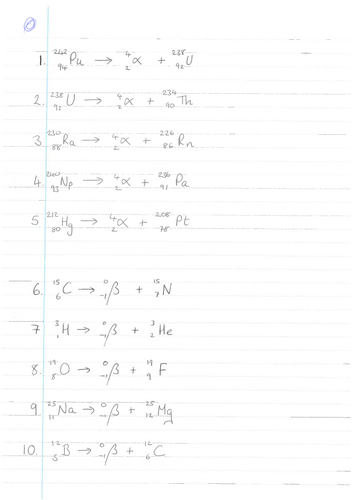 ①
1. ²⁴²₉₄Pu → ⁴₂α + ²³⁸₉₂U
2. ²³⁸₉₂U → ⁴₂α + ²³⁴₉₀Th
3 ²³⁰₈₈Ra → ⁴₂α + ²²⁶₈₆Rn
4. ²⁴⁰₉₃Np → ⁴₂α + ²³⁶₉₁Pa
5 ²¹²₈₀Hg → ⁴₂α + ²⁰⁸₇₈Pt
6. ¹⁵₆C → ⁰₋₁β + ¹⁵₇N
7 ³₁H → ⁰₋₁β + ³₂He
8. ¹⁹₈O → ⁰₋₁β + ¹⁹₉F
9. ²⁵₁₁Na → ⁰₋₁β + ²⁵₁₂Mg
10. ¹²₅B → ⁰₋₁β + ¹²₆C